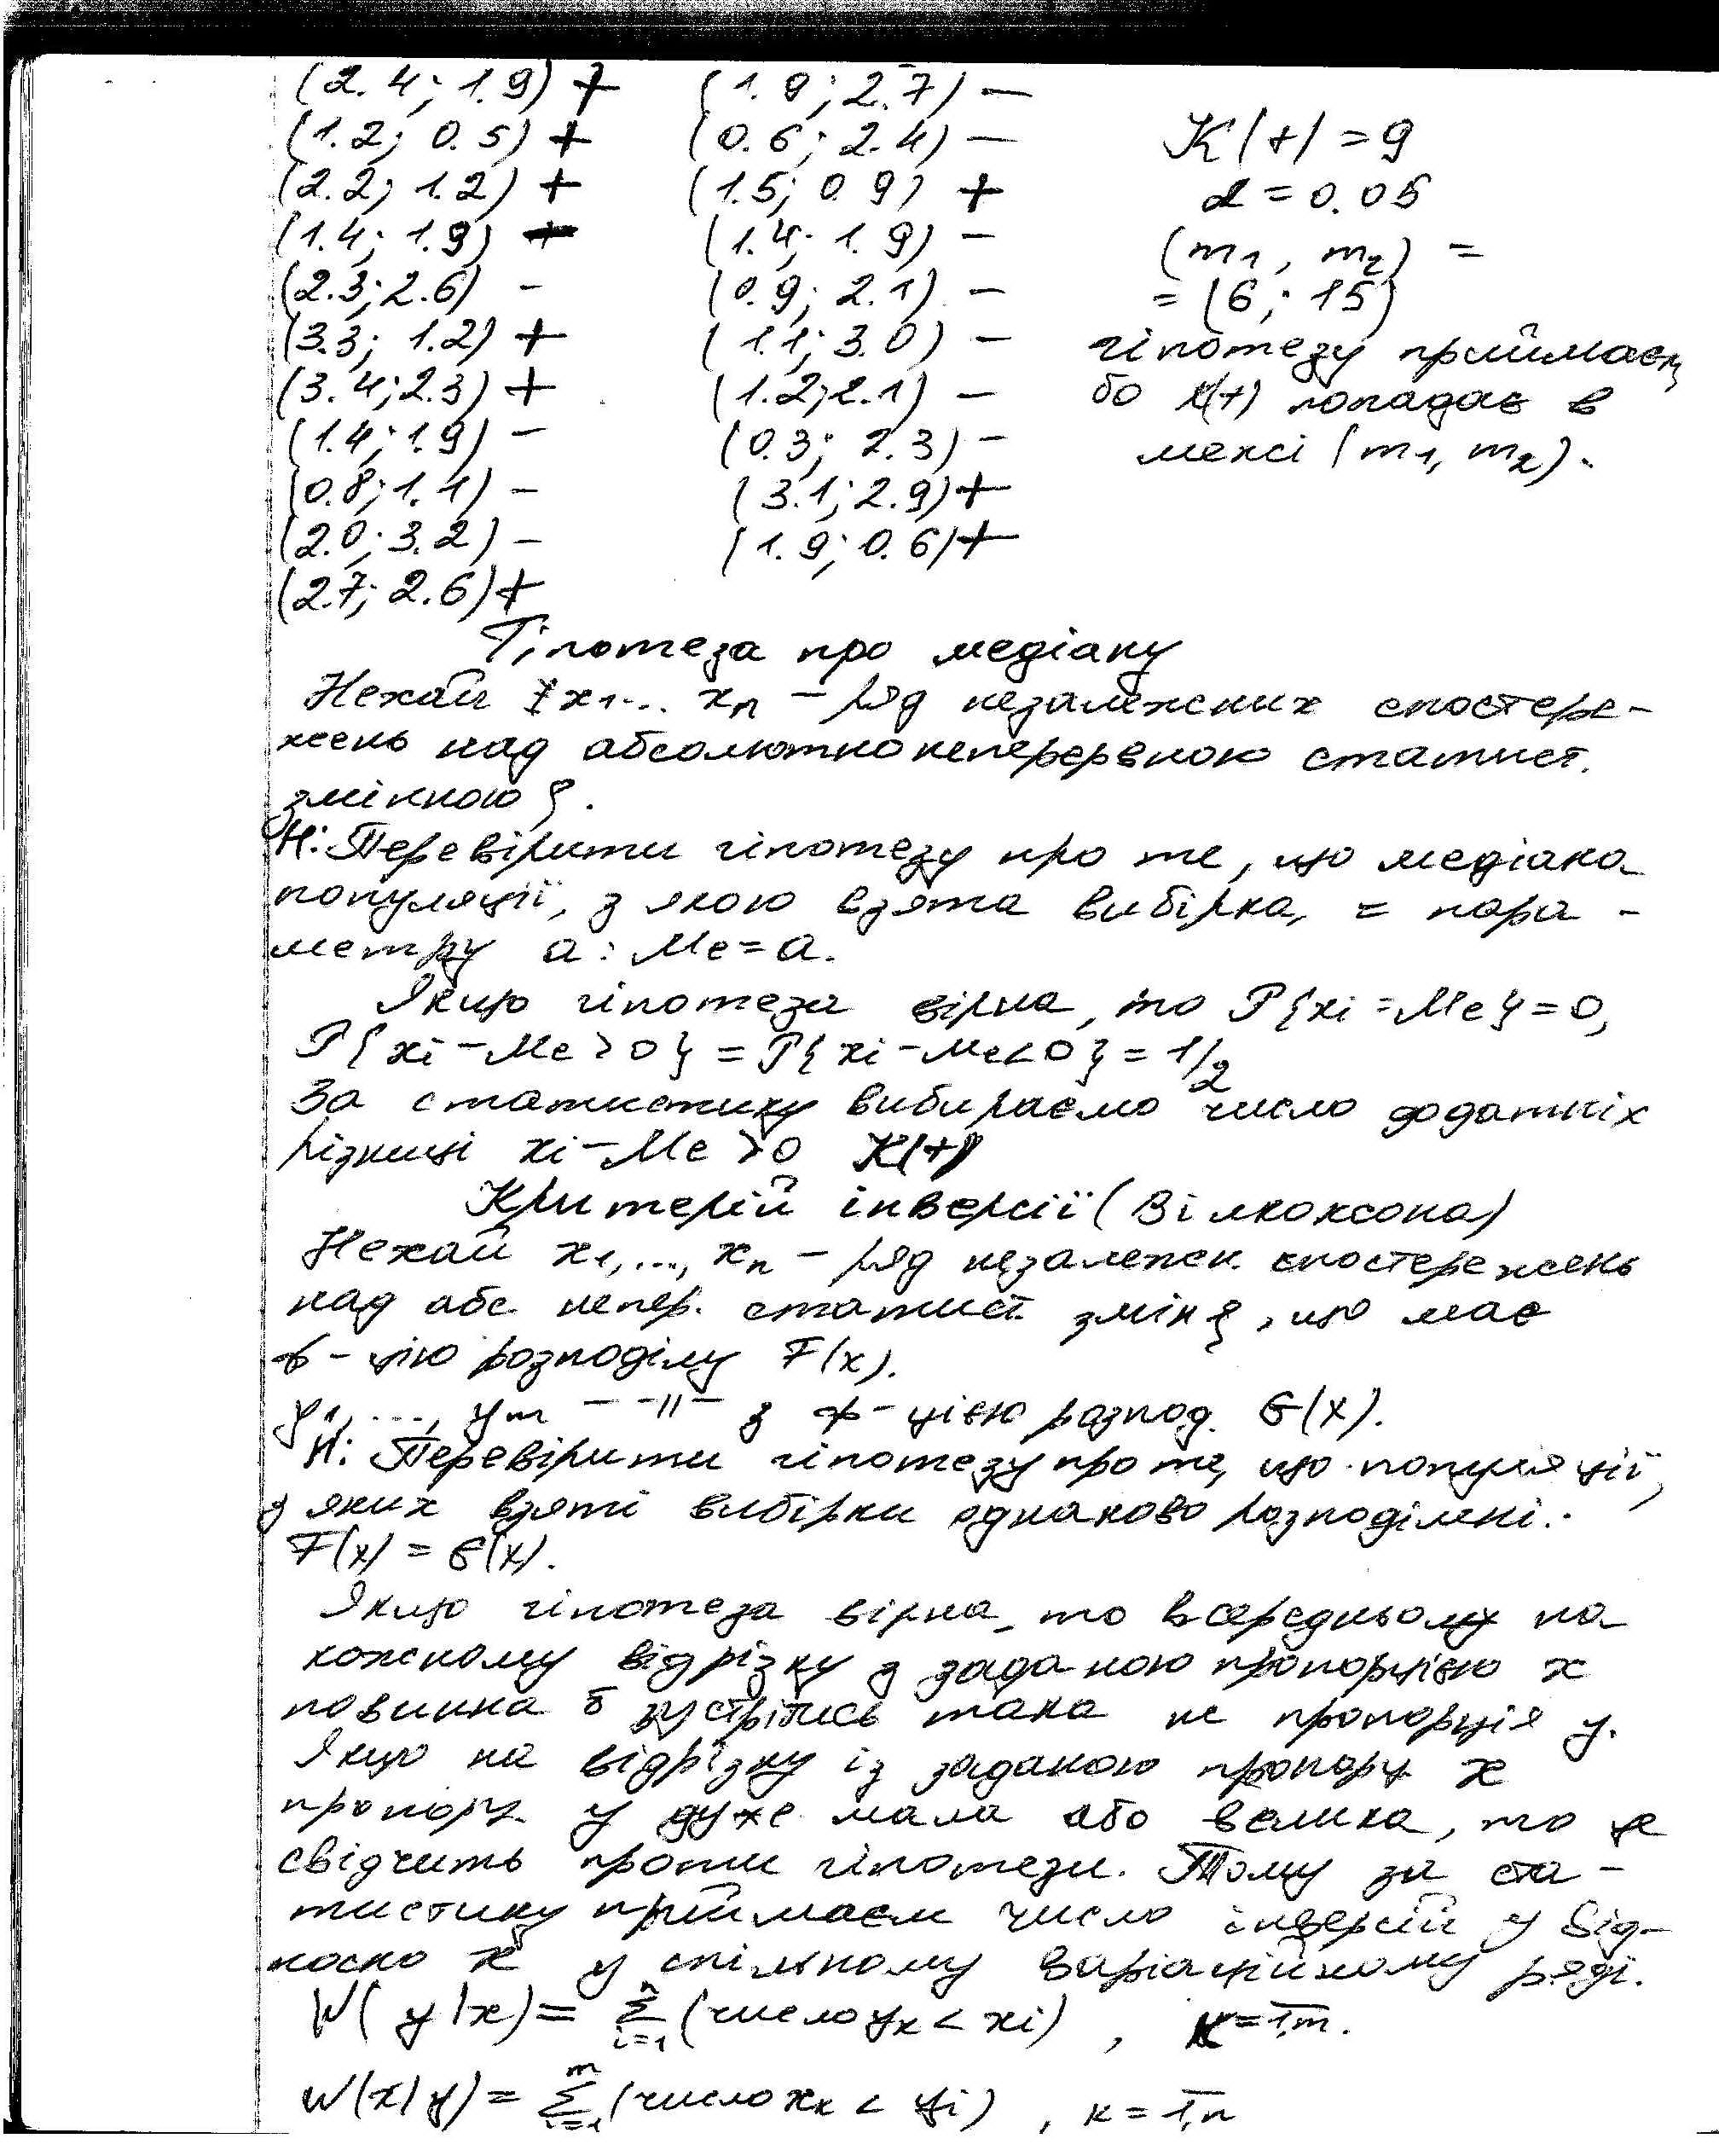 (2.4; 1.9) + (1.9; 2.7) −
(1.2; 0.5) + (0.6; 2.4) − K(+) = 9
(2.2; 1.2) + (1.5; 0.9) + α = 0.05
(1.4; 1.9) − (1.4; 1.9) − (m₁, m₂) =
(2.3; 2.6) − (0.9; 2.1) − = (6; 15)
(3.3; 1.2) + (1.1; 3.0) − гіпотезу приймаєм,
(3.4; 2.3) + (1.2; 2.1) − бо K(+) попадає в
(1.4; 1.9) − (0.3; 2.3) − межі (m₁, m₂).
(0.8; 1.1) − (3.1; 2.9) +
(2.0; 3.2) − (1.9; 0.6) +
(2.7; 2.6) +
Гіпотеза про медіану
Нехай x₁... xₙ – ряд незалежних спостере-
жень над абсолютно неперервною статист.
змінною ξ.
H: Перевірити гіпотезу про те, що медіана
популяції, з якою взята вибірка, = пара-
метру a: Me = a.
Якщо гіпотеза вірна, то P{xi = Me} = 0,
P{xi − Me > 0} = P{xi − Me < 0} = 1/2
За статистику вибираємо число додатніх
різниці xi − Me > 0 K(+)
Критерій інверсії (Вілкоксона)
Нехай x₁, ..., xₙ – ряд незалежн. спостережень
над абс непер. статист. змін ξ, що має
ф-цію розподілу F(x).
y₁, ..., yₘ – -॥- з ф-цією розпод. G(x).
H: Перевірити гіпотезу про те, що популяції,
з яких взяті вибірки однаково розподілені:
F(x) = G(x).
Якщо гіпотеза вірна, то в середньому на
кожному відрізку з заданою пропорцією x
повинна б зустрітись така ж пропорція y.
Якщо на відрізку із заданою пропорц x
пропорц. y дуже мала або велика, то це
свідчить проти гіпотези. Тому за ста-
тистику приймаєм число інверсій y від-
носно x у спільному варіаційному ряді.
W(y|x) = Σⁿᵢ₌₁ (число yₖ < xi), k = 1,m.
W(x|y) = Σᵐᵢ₌₁ (число xₖ < yi), k = 1,n